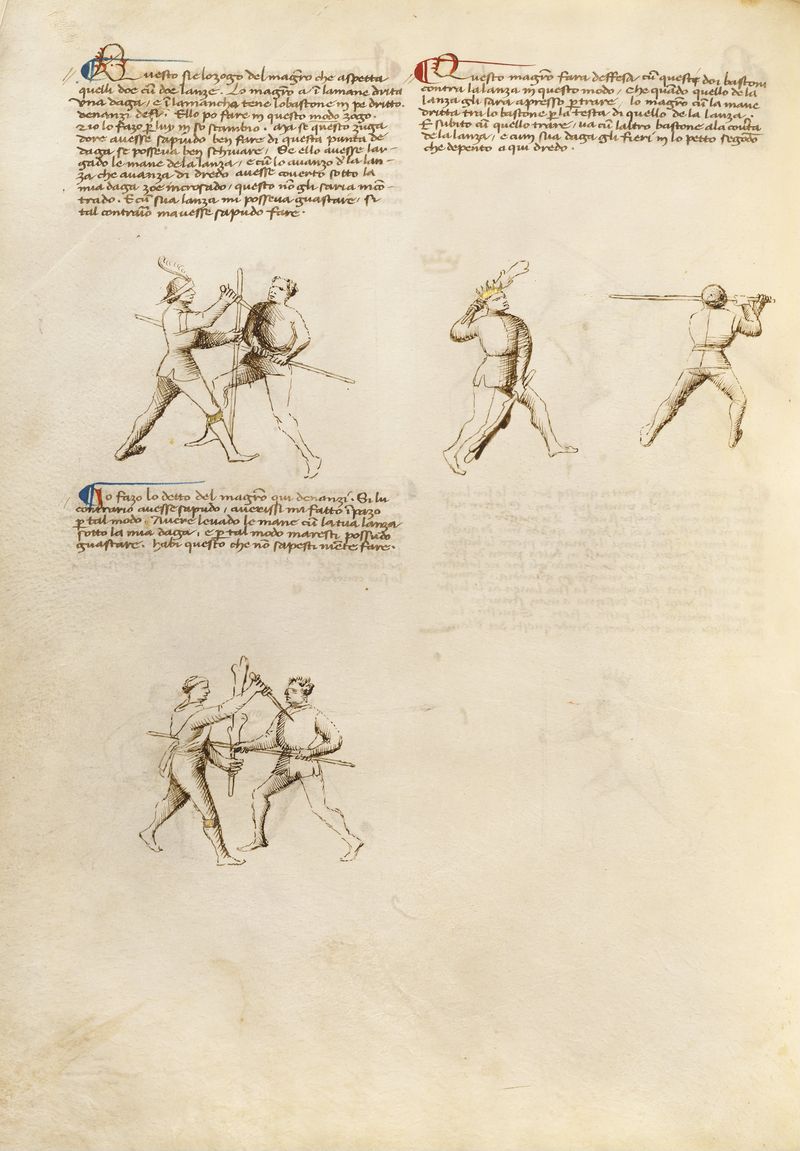 Questo sie lozogo del magr̃o che aspetta
quelli doe cũ doe lanze. Lo magr̃o a ĩ lamane dritta
una daga / e ĩ lamancha tene lobastone in pe dritto.
denanzi desi. Ello po fare in questo modo zogo.
Zio lo fazo ꝑ luy in so scambio. Ma se questo zuga-
dore avesse sapudo ben fare di questa punta de
daga se posseva ben schivare / Se ello avesse lar-
gado le mane dela lanza / e cũ lo avanzo d'la lan-
za che avanza di dredo avesse coverto sotto la
mia daga zoe incrosado / questo nõ gli saria incõ-
trado. E cũ sua lanza mi posseva guastare / si
tal contraĩo mavesse sapudo fare.
Questo magr̃o fara deffesa cũ questi doi bastoni
contra la lanza in questo modo / che quãdo quello de la
lanza gli sara apresso ꝑ trare / lo magr̃o cũ la mane
dritta tra lo bastone ꝑ la testa di quello de la lanza.
E subito cũ quello trare / va cũ laltro bastone ala coṽta
dela lanza / e cum sua daga gli fieri in lo petto segõdo
che depento a qui dredo.
Io fazo lo deito del magr̃o qui denanzi. Si lu
contrario avesse sapudo / averissi mi fatto ĩpazo
ꝑ tal modo. Avere levado le mane cũ la tua lanza
sotto la mia daga / e ꝑ tal modo maresti possudo
guastare. Habi questo che nõ sapesti niẽte fare.